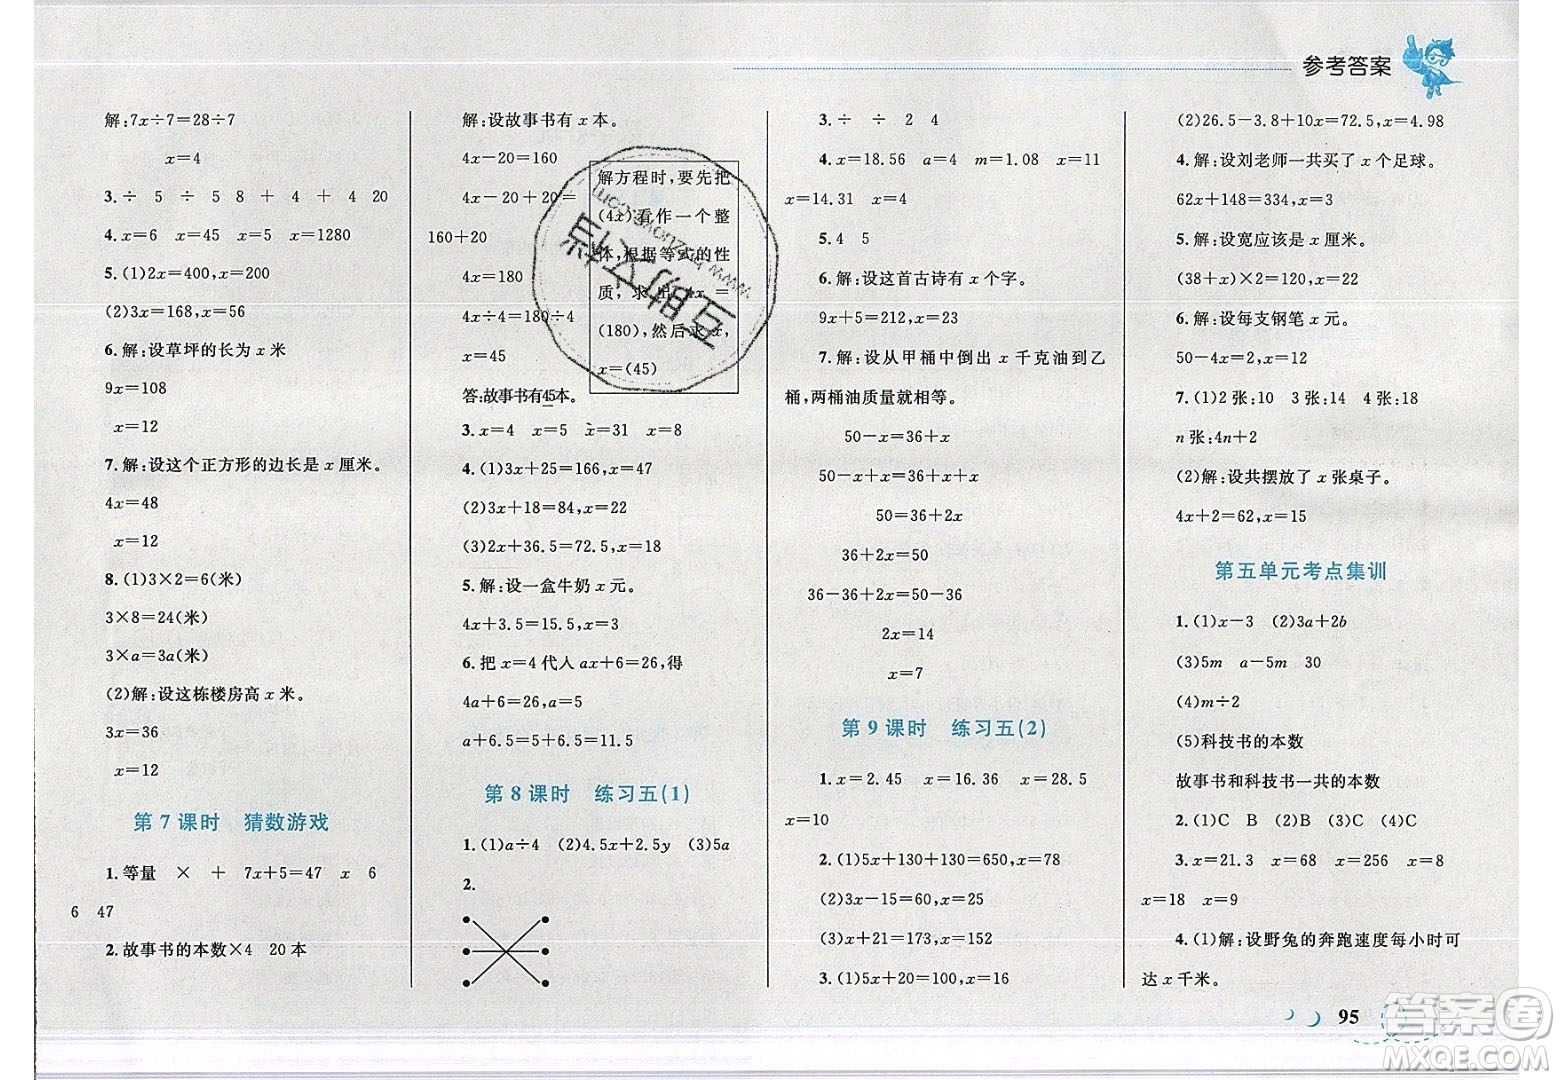 参考答案
解:7x÷7=28÷7
x=4
3.÷ 5 ÷ 5 8 + 4 + 4 20
4.x=6 x=45 x=5 x=1280
5.(1)2x=400,x=200
(2)3x=168,x=56
6.解:设草坪的长为 x 米
9x=108
x=12
7.解:设这个正方形的边长是 x 厘米。
4x=48
x=12
8.(1)3×2=6(米)
3×8=24(米)
3×a=3a(米)
(2)解:设这栋楼房高 x 米。
3x=36
x=12
第 7 课时 猜数游戏
1.等量 × + 7x+5=47 x 6
6 47
2.故事书的本数×4 20 本
解:设故事书有 x 本。
4x-20=160
4x-20+20=
160+20
4x=180
4x÷4=180÷4
x=45
答:故事书有45本。
解方程时,要先把
(4x)看作一个整
体,根据等式的性
质,求出4x=
(180),然后求 x,
x=(45)
3.x=4 x=5 x=31 x=8
4.(1)3x+25=166,x=47
(2)3x+18=84,x=22
(3)2x+36.5=72.5,x=18
5.解:设一盒牛奶 x 元。
4x+3.5=15.5,x=3
6.把 x=4 代人 ax+6=26,得
4a+6=26,a=5
a+6.5=5+6.5=11.5
第 8 课时 练习五(1)
1.(1)a÷4 (2)4.5x+2.5y (3)5a
2.
3.÷ ÷ 2 4
4.x=18.56 a=4 m=1.08 x=11
x=14.31 x=3
5.4 5
6.解:设这首古诗有 x 个字。
9x+5=212,x=23
7.解:设从甲桶中倒出 x 千克油到乙
桶,两桶油质量就相等。
50-x=36+x
50-x+x=36+x+x
50=36+2x
36+2x=50
36-36+2x=50-36
2x=14
x=7
第 9 课时 练习五(2)
1.x=2.45 x=16.36 x=28.5
x=10
2.(1)5x+130+130=650,x=78
(2)3x-15=60,x=25
(3)x+21=173,x=152
3.(1)5x+20=100,x=16
(2)26.5-3.8+10x=72.5,x=4.98
4.解:设刘老师一共买了 x 个足球。
62x+148=334,x=3
5.解:设宽应该是 x 厘米。
(38+x)×2=120,x=22
6.解:设每支钢笔 x 元。
50-4x=2,x=12
7.(1)2 张:10 3 张:14 4 张:18
n 张:4n+2
(2)解:设共摆放了 x 张桌子。
4x+2=62,x=15
第五单元考点集训
1.(1)x-3 (2)3a+2b
(3)5m a-5m 30
(4)m÷2
(5)科技书的本数
故事书和科技书一共的本数
2.(1)C B (2)B (3)C (4)C
3.x=21.3 x=68 x=256 x=8
x=18 x=9
4.(1)解:设野兔的奔跑速度每小时可
达 x 千米。
95
答案圈
MXQE.COM